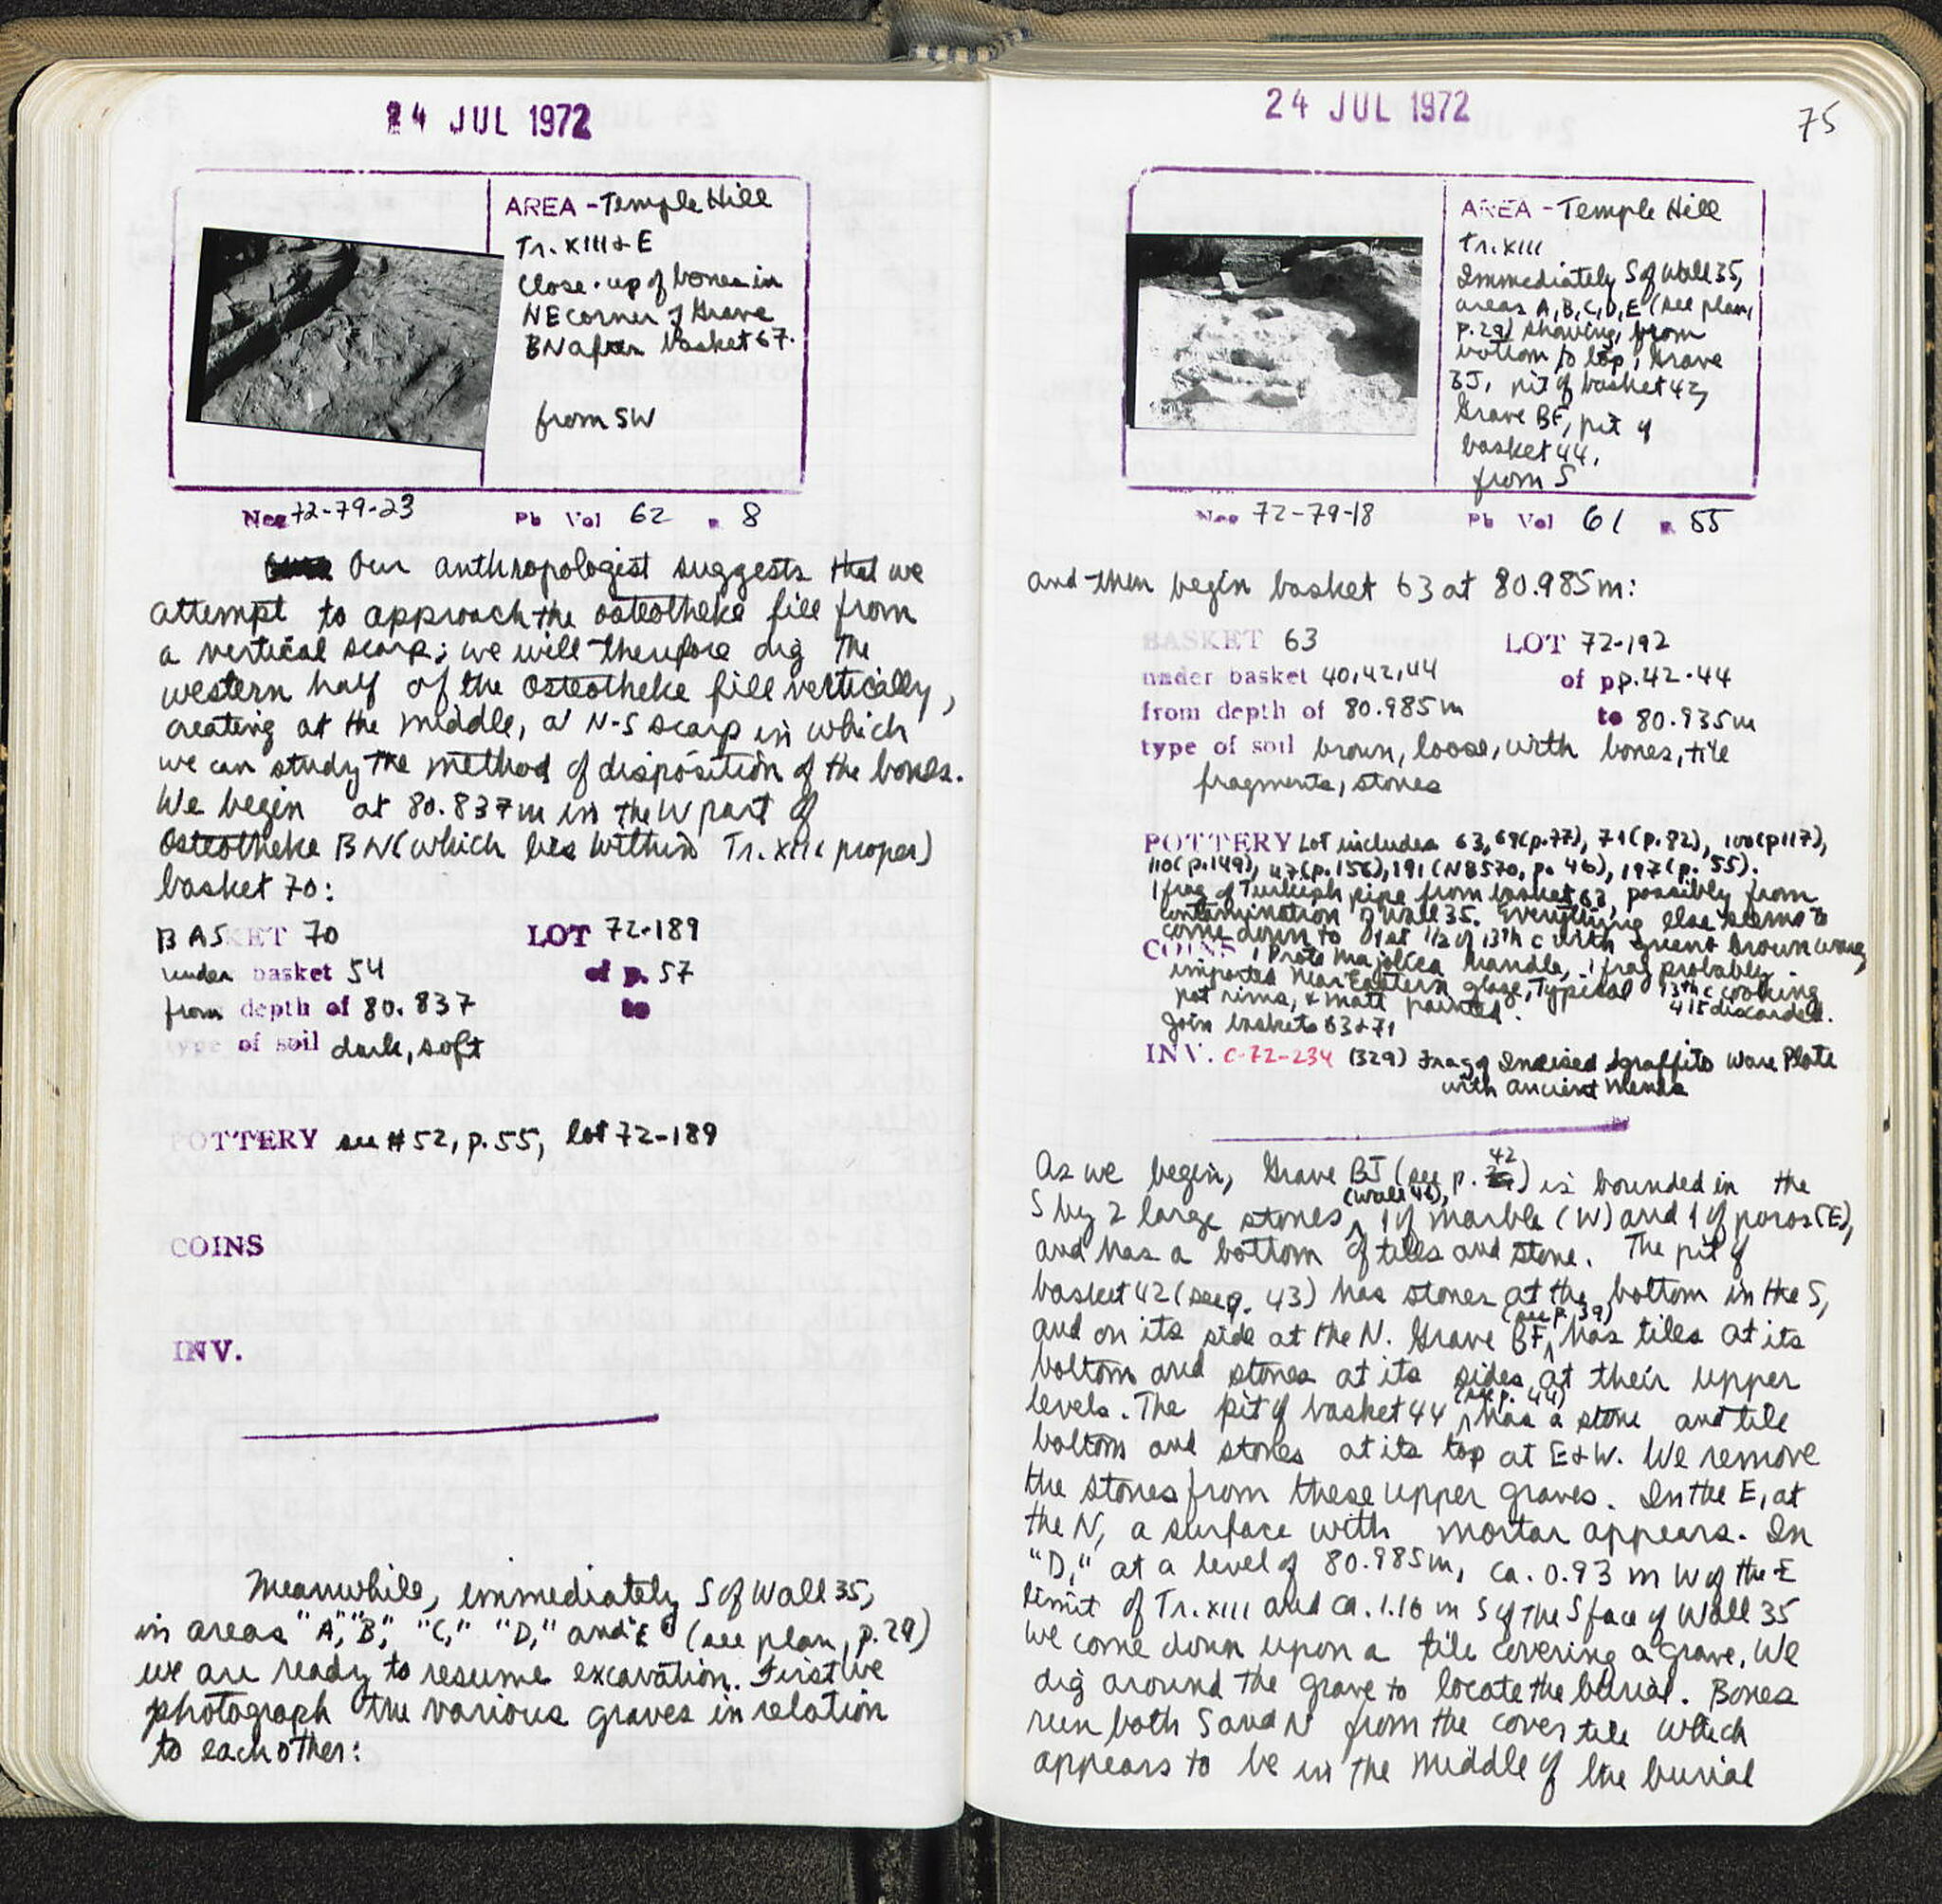 24 JUL 1972
AREA - Temple Hill
Tr. XIII + E
Close-up of bones in
NE corner of Grave
BN after basket 67.
from SW
Neg 72-79-23 Pb Vol 62 p. 8
Our anthropologist suggests that we
attempt to approach the osteotheke fill from
a vertical scarp; we will therefore dig the
western half of the osteotheke fill vertically,
creating at the middle, a N-S scarp in which
we can study the method of disposition of the bones.
We begin at 80.837m in the W part of
Osteotheke BN (which lies within Tr. XIII proper)
basket 70:
BASKET 70 LOT 72-189
under basket 54 of p. 57
from depth of 80.837 to
type of soil dark, soft
POTTERY see #52, p. 55, lot 72-189
COINS
INV.
Meanwhile, immediately S of Wall 35,
in areas "A," "B," "C," "D," and "E" (see plan, p. 29)
we are ready to resume excavation. First we
photograph the various graves in relation
to each other:
24 JUL 1972
75
AREA - Temple Hill
Tr. XIII
Immediately S of Wall 35,
areas A, B, C, D, E (see plan,
p. 29) showing, from
bottom to top, Grave
BJ, pit of basket 42,
Grave BF, pit of
basket 44,
from S
Neg 72-79-18 Pb Vol 61 p. 55
and then begin basket 63 at 80.985m:
BASKET 63 LOT 72-192
under basket 40, 42, 44 of pp. 42-44
from depth of 80.985m to 80.935m
type of soil brown, loose, with bones, tile
fragments, stones
POTTERY Lot includes 63, 69(p.77), 71(p.82), 100(p117),
110(p.149), 117(p.156), 191(NB570, p. 46), 197(p. 55).
1 frag of Turkish pipe from basket 63, possibly from
contamination of Wall 35. Everything else seems to
come down to 1st 1/2 of 13th c with green & brown ware,
COINS 1 Proto majolica handle, 1 frag probably
imported Near Eastern glaze, Typical 13th c cooking
pot rims, & matt painted. 415 discarded.
Join baskets 63+71
INV. C-72-234 (329) Frag of Incised Sgraffito Ware Plate
with ancient mends
As we begin, Grave BJ (see p. 42) is bounded in the
S by 2 large stones (Wall 46), 1 of marble (W) and 1 of poros (E),
and has a bottom of tiles and stone. The pit of
basket 42 (see p. 43) has stones at the bottom in the S,
and on its side at the N. Grave BF (see p. 39) has tiles at its
bottom and stones at its sides at their upper
levels. The pit of basket 44 (see p. 44) has a stone and tile
bottom and stones at its top at E+W. We remove
the stones from these upper graves. In the E, at
the N, a surface with mortar appears. In
"D," at a level of 80.985m, ca. 0.93 m W of the E
limit of Tr. XIII and ca. 1.16 m S of the S face of Wall 35
we come down upon a tile covering a grave. We
dig around the grave to locate the burial. Bones
run both S and N from the cover tile which
appears to be in the middle of the burial